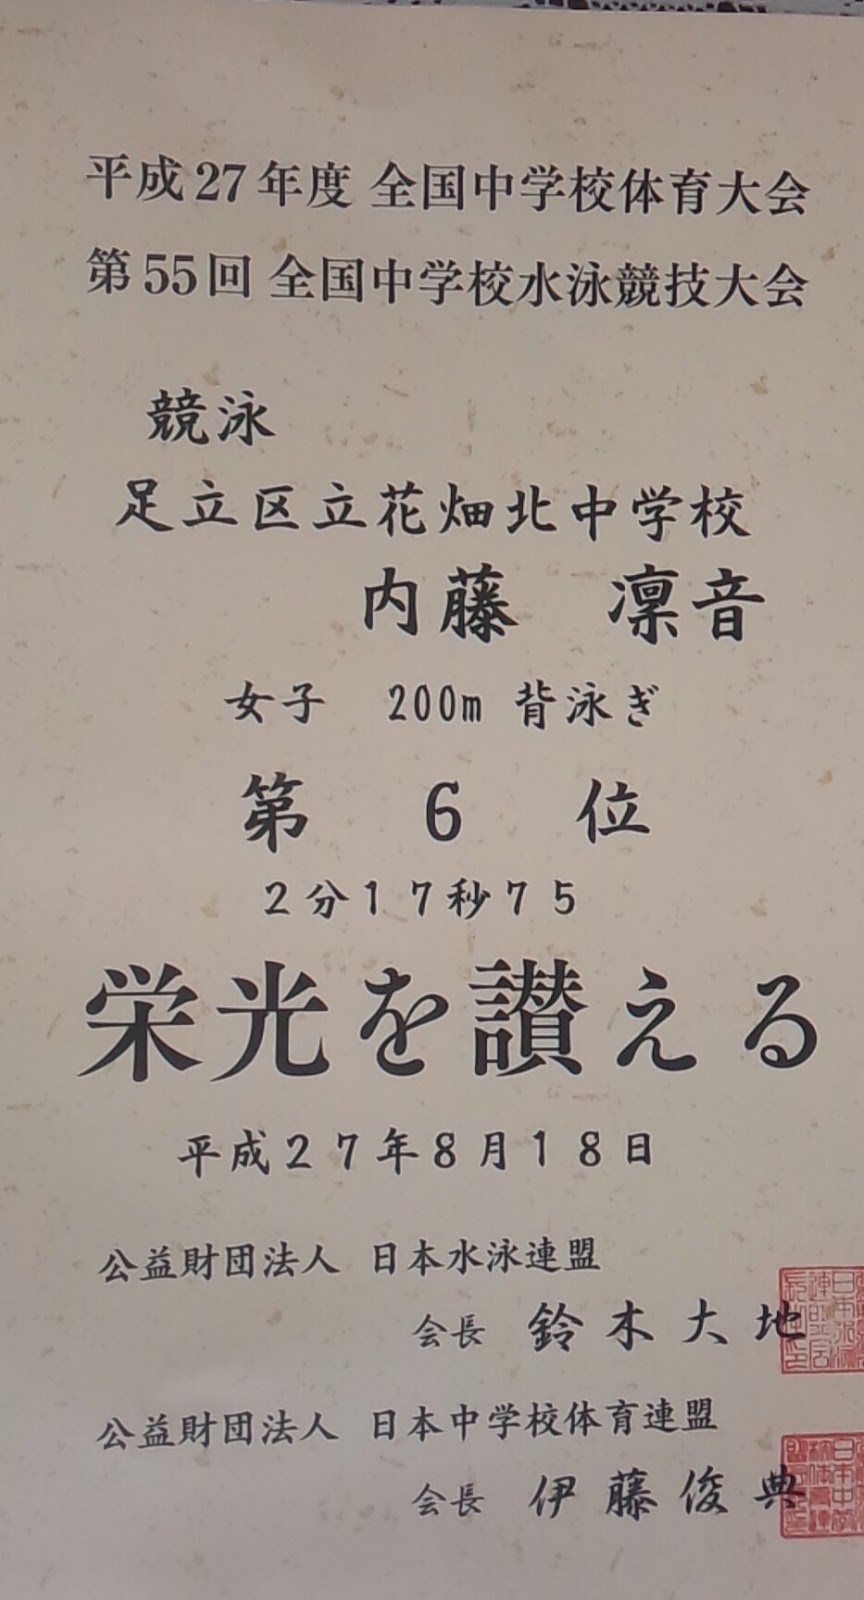 平成27年度 全国中学校体育大会
第55回 全国中学校水泳競技大会
競泳
足立区立花畑北中学校
内藤 凛音
女子 200m 背泳ぎ
第 6 位
2分17秒75
栄光を讃える
平成27年8月18日
公益財団法人 日本水泳連盟
会長 鈴木大地
公益財団法人 日本中学校体育連盟
会長 伊藤俊典